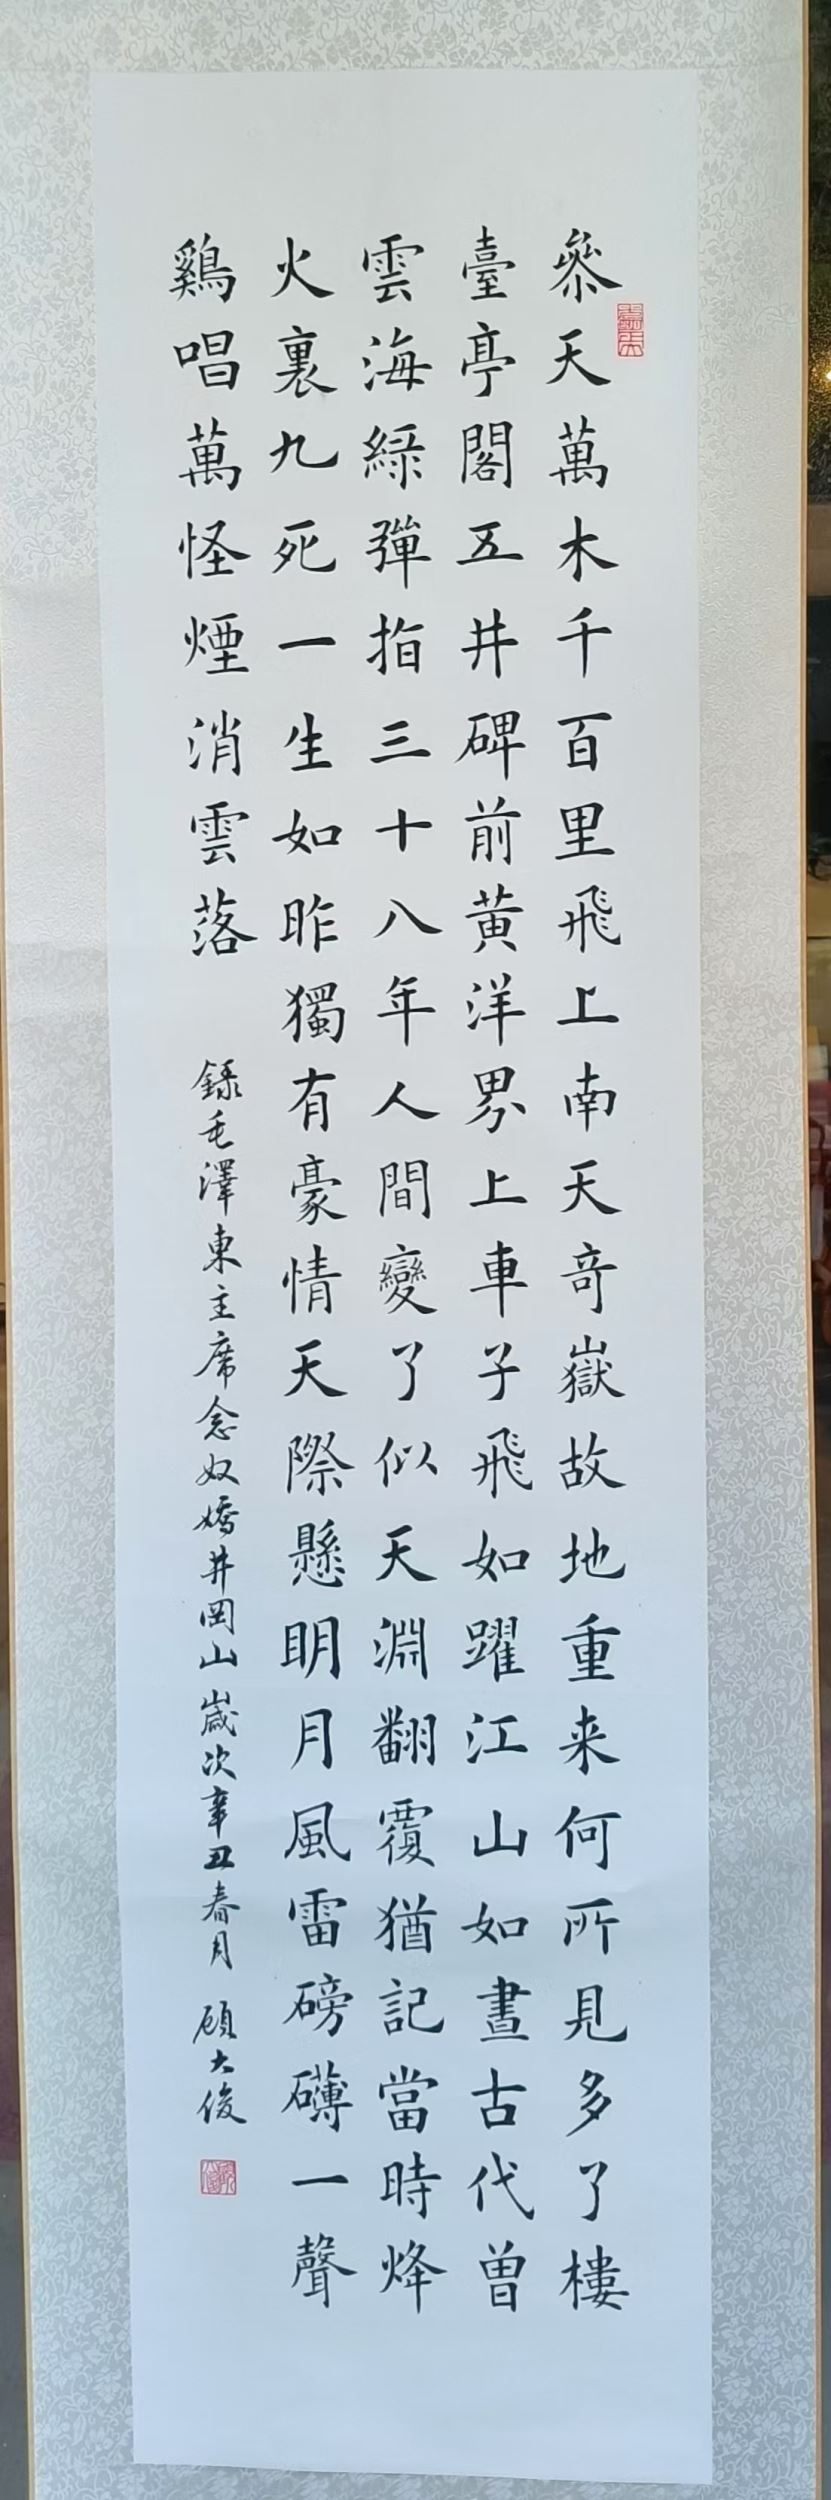 叅天萬木千百里飛上南天奇嶽故地重来何所見多了樓
臺亭閣五井碑前黄洋界上車子飛如躍江山如畫古代曾
雲海綠彈指三十八年人間變了似天淵翻覆猶記當時烽
火裏九死一生如昨獨有豪情天際懸明月風雷磅礴一聲
鷄唱萬怪煙消雲落
錄毛澤東主席念奴嬌井岡山歲次辛丑春月 顧大俊